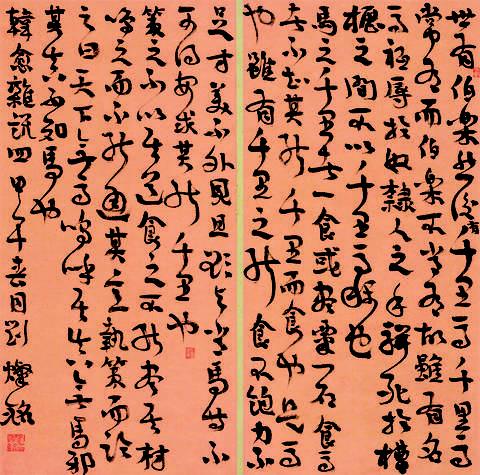 世有伯樂然後有千里馬千里馬
常有而伯樂不常有故雖有名
馬祗辱於奴隸人之手駢死於槽
櫪之間不以千里馬稱也
馬之千里者一食或盡粟一石食馬
者不知其能千里而食也是馬
也雖有千里之能食不飽力不
足才美不外見且欲與常馬等不
可得安求其能千里也
策之不以其道食之不能盡其材
鳴之而不能通其意執策而臨
之曰天下無馬嗚呼其真無馬邪
其真不知馬也
韓愈雜說四甲午春月劉燦銘